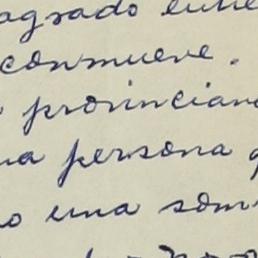 agrado entre
conmueve.
provincian
na persona q
o una som